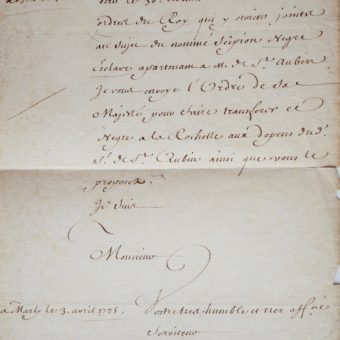 ordres du Roy qui y etoient joints
au sujet du nommé Scipion Negre
Esclave apartenant a M. de St. Aubin
Je vous envoye l'Ordre de Sa
Majesté pour faire transferer ce
Negre a la Rochelle aux depens du d.
Sr. de St. Aubin ainsi que vous le
proposez.
Je suis
Monsieur
a Marly le 3. avril 1725. Votre tres humble et tres affné
Serviteur